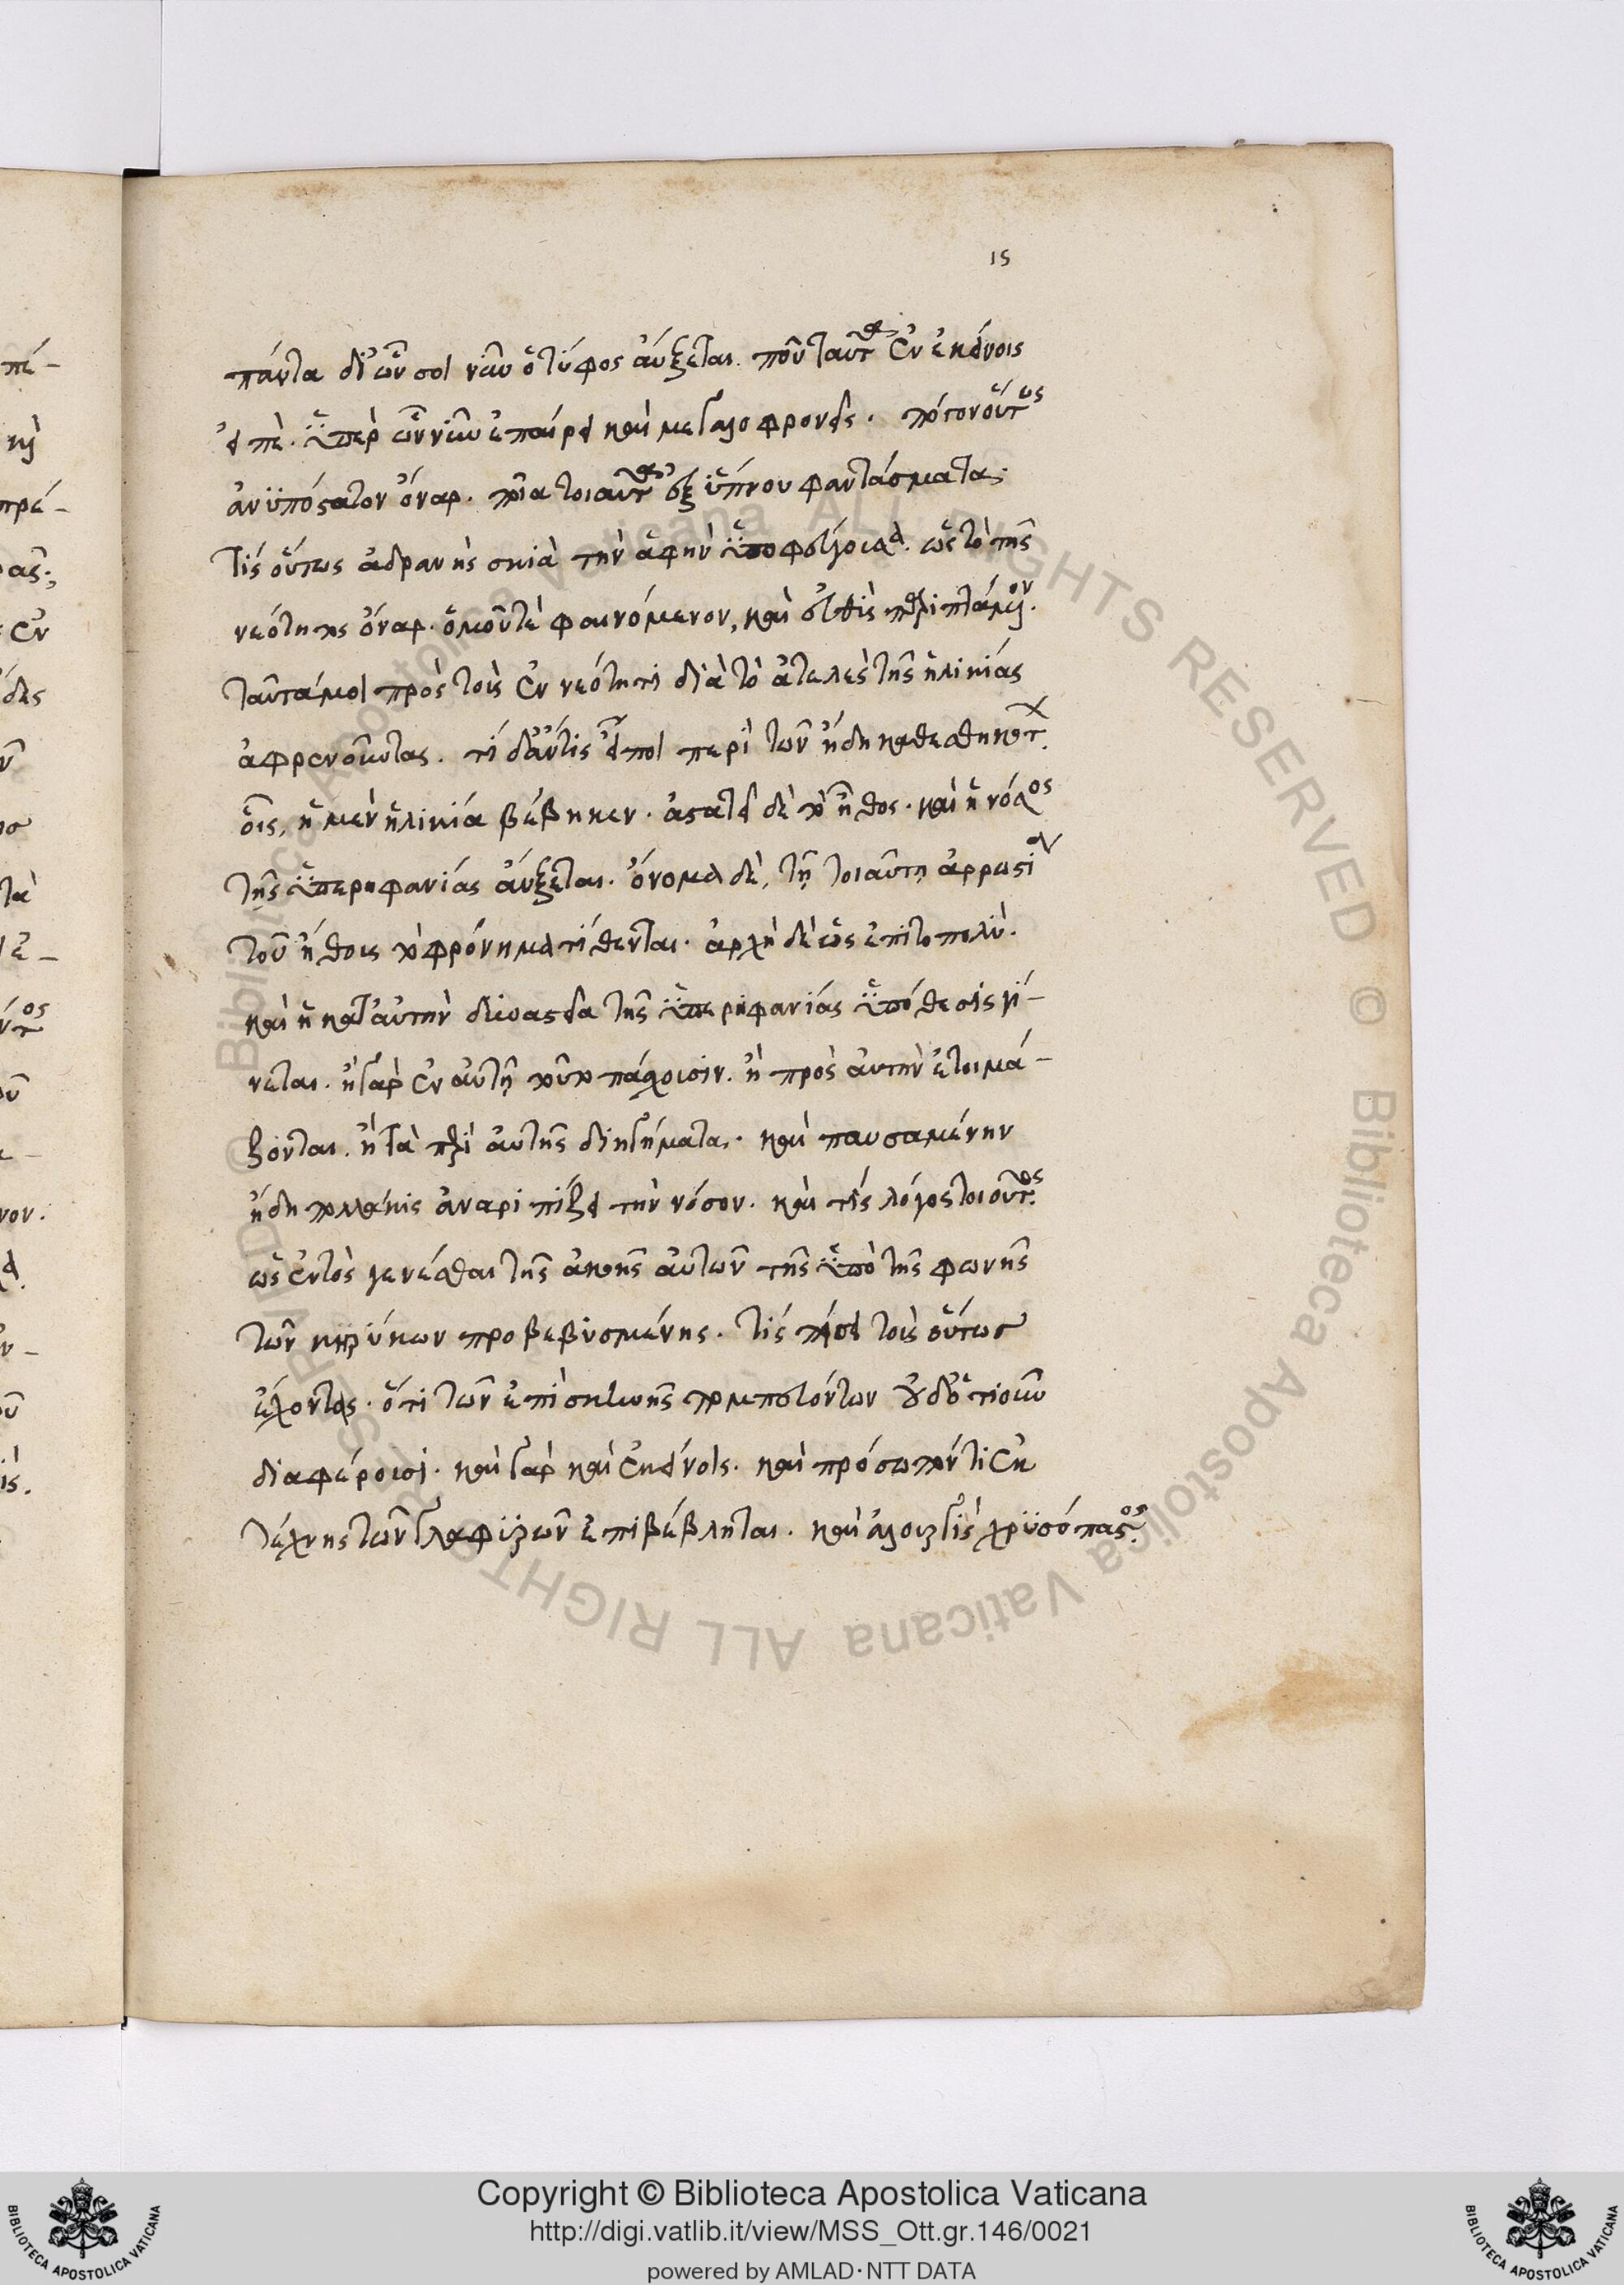 15
πάντα δι' ὧν σοι νῦν ὁ τύφος αὔξεται. ποῦ ταῦτα ἐν ἐκείνοις
εἰπὲ. ὑπὲρ ὧν νῦν ἐπαίρει καὶ μεγαλοφρονεῖς. ποῖον οὕτως
ἀνϋπόστατον ὄναρ. ποῖα τοιαῦτα ἐξ ὕπνου φαντάσματα;
τίς οὕτως ἀδρανὴς σκιὰ τὴν ἁφὴν ὑποφεύγουσα. ὡς τὸ τῆς
νεότητος ὄναρ. ὁμοῦ τὲ φαινόμενον, καὶ εὐθὺς περιπτάμενον.
ταῦτά μοι πρὸς τοὺς ἐν νεότητι διὰ τὸ ἀτελὲς τῆς ἡλικίας
ἀφρενοῦντας. τί δ' ἄν τις εἴποι περὶ τῶν ἤδη καθεστηκότων.
οἷς, ἡ μὲν ἡλικία βέβηκεν. ἀστατεῖ δὲ τὸ ἦθος. καὶ ἡ νόσος
τῆς ὑπερηφανίας αὔξεται. ὄνομα δὲ, τῇ τοιαύτῃ ἀρρωστίᾳ
τοῦ ἤθους τὸ φρόνημα τίθενται. ἀρχὴ δὲ ὡς ἐπιτοπολὺ.
καὶ ἡ κατ' αὐτὴν δυναστεία τῆς ὑπερηφανίας ὑπόθεσις γί-
νεται. ἢ γὰρ ἐν αὐτῇ τοῦτο πάσχουσιν. ἢ πρὸς αὐτὴν ἑτοιμά-
ζονται. ἢ τὰ περὶ αὐτῆς διηγήματα. καὶ παυσαμένην
ἤδη πολλάκις ἀναριπίζει τὴν νόσον. καὶ τίς λόγος τοιοῦτος.
ὡς ἐντὸς γενέσθαι τῆς ἀκοῆς αὐτῶν τῆς ὑπὸ τῆς φωνῆς
τῶν κηρύκων προβεβυσμένης. τίς πείσει τοὺς οὕτως
ἔχοντας. ὅτι τῶν ἐπὶ σκηνῆς πομπευόντων οὐδ' ὁτιοῦν
διαφέρουσι. καὶ γὰρ καὶ ἐκείνοις. καὶ πρόσωπόν τι ἐκ
τέχνης τῶν γλαφυρῶν ἐπιβέβληται. καὶ ἁλουργὶς χρϋσόπαστος.